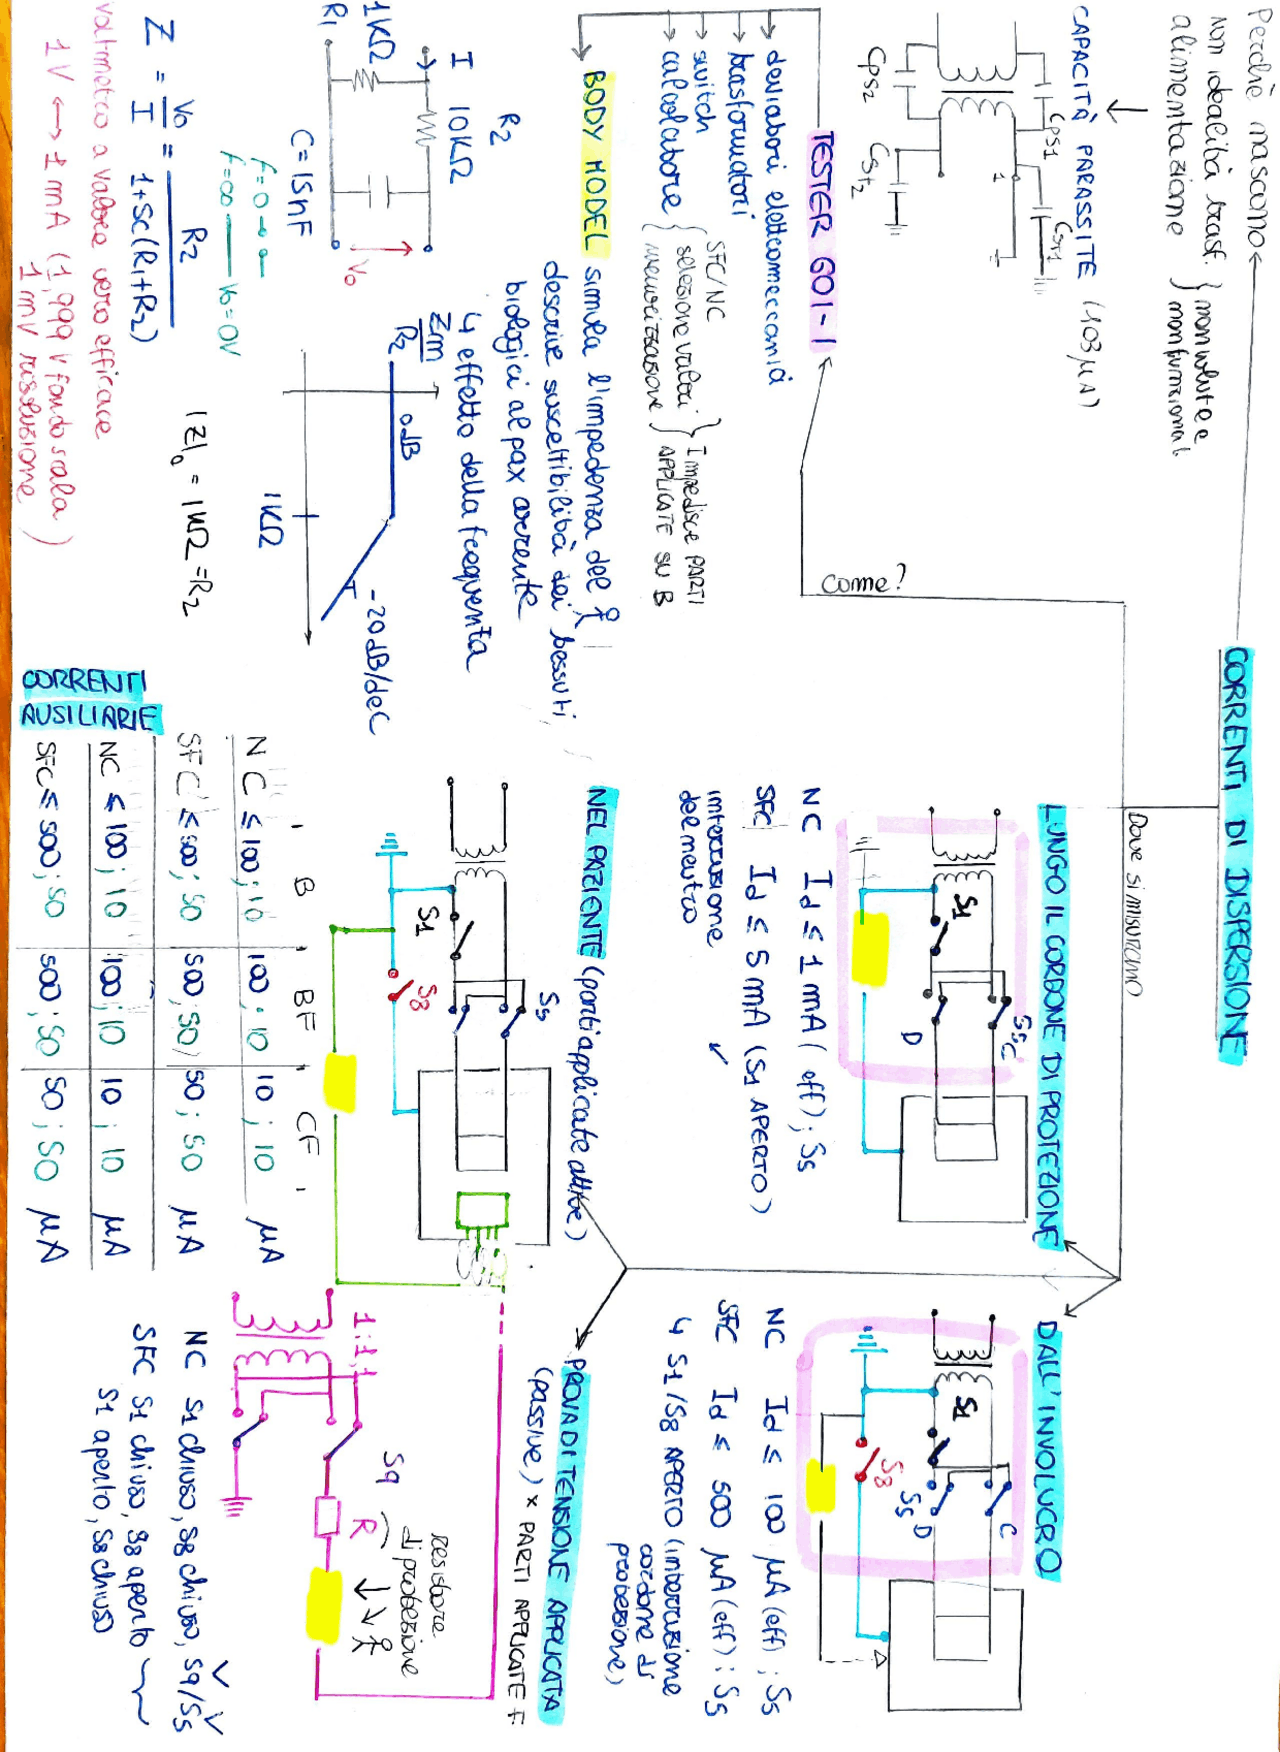 CORRENTI DI DISPERSIONE
Perchè nascono
non idealità trasf.
alimentazione
non volute e
non funzionali
CAPACITÀ PARASSITE (103 μA)
CPS1
CPS2
CST1
CST2
Come?
Dove si misurano
TESTER 601-1
deviatori elettromeccanici
trasformatori
switch
calcolatore
SFC/NC
selezione valori
memorizzazione
Impedisce PARTI
APPLICATE SU B
BODY MODEL simula l'impedenza del
descrive suscettibilità dei tessuti
biologici al pax corrente
↳ effetto della frequenza
R1
1KΩ
I
R2
10KΩ
C=15nF
Vo
Zm
R2
0dB
-20dB/dec
1KΩ
Z = Vo/I = R2/1+SC(R1+R2)
f=0
f=∞ Vo=0V
|Z|₀ = 1KΩ = R2
voltmetro a valore vero efficace
1V ↔ 1 mA (1,999 V fondo scala
1 mV risoluzione)
LUNGO IL CORDONE DI PROTEZIONE
S1
S5
C
D
NC Id ≤ 1 mA (eff); S5
SFC Id ≤ 5 mA (S1 APERTO)
interruzione
del neutro
DALL'INVOLUCRO
S1
S8
S5
D
C
NC Id ≤ 100 μA (eff); S5
SFC Id ≤ 500 μA (eff); S5
↳ S1/S8 APERTO (interruzione
cordone di
protezione)
NEL PAZIENTE (parti applicate attive)
S1
S8
S5
B BF CF
NC ≤ 100; 10 100; 10 10; 10 μA
SFC ≤ 500; 50 500; 50 50; 50 μA
CORRENTI
AUSILIARIE
NC ≤ 100; 10 100; 10 10; 10 μA
SFC ≤ 500; 50 500; 50 50; 50 μA
PROVA DI TENSIONE APPLICATA
(passive) x PARTI APPLICATE F
1:1,1
S9
R
resistore
di protezione
NC S1 chiuso, S8 chiuso, S9/S5
SFC S1 chiuso, S8 aperto
S1 aperto, S8 chiuso